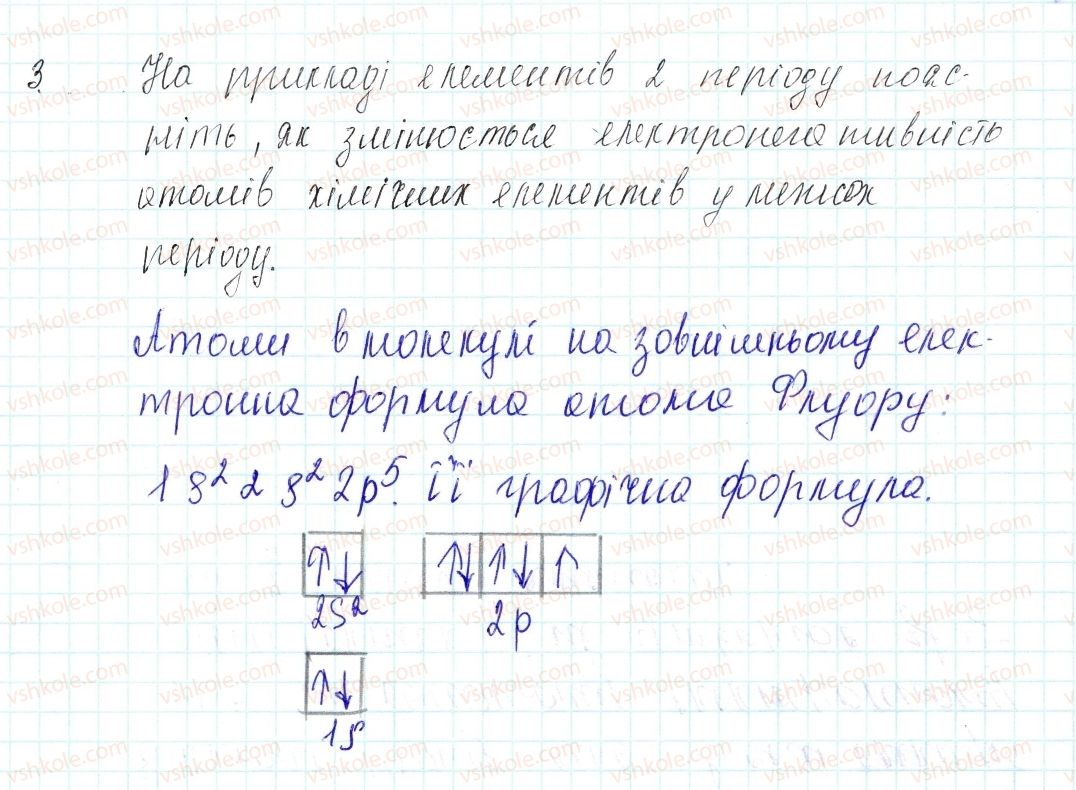 3. На прикладі елементів 2 періоду пояс-
ніть, як змінюється електронегативність
атомів хімічних елементів у межах
періоду.
Атоми в молекулі на зовнішньому елек-
тронна формула атома Флуору:
1s² 2s² 2p⁵. Її графічна формула.
↑↓ ↑↓ ↑↓ ↑
2s² 2p
↑↓
1s
vshkole.com